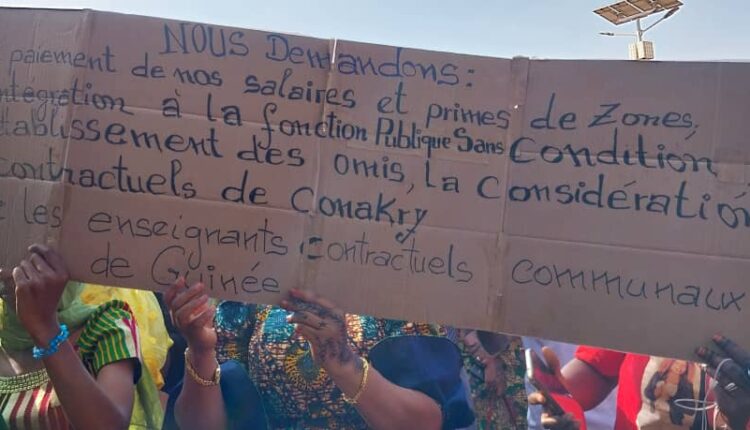 NOUS Demandons:
paiement de nos salaires et primes de Zones,
ntégration à la fonction Publique Sans Condition
tablissement des omis, La Considération
contractuels de Conakry
les enseignants contractuels communaux
de Guinée